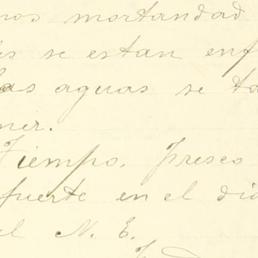 nos mortandad
se estan enf
las aguas se ta
ner.
Tiempo. Fresco
fuerte en el dia
el N. E.